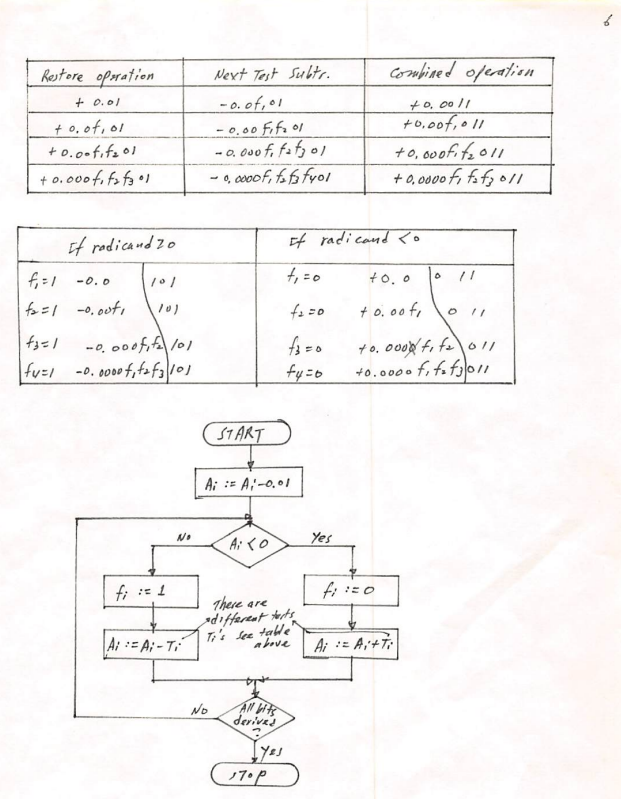 6
Restore operation Next Test Subtr. Combined operation
+ 0.01 -0.0f₁01 +0.0011
+ 0.0f₁01 -0.00f₁f₂01 +0.00f₁011
+ 0.00f₁f₂01 -0.000f₁f₂f₃01 +0.000f₁f₂011
+ 0.000f₁f₂f₃01 -0.0000f₁f₂f₃f₄01 +0.0000f₁f₂f₃011
If radicand ≥0 If radicand <0
f₁=1 -0.0 101 f₁=0 +0.0 0 11
f₂=1 -0.00f₁ 101 f₂=0 +0.00f₁ 0 11
f₃=1 -0.000f₁f₂ 101 f₃=0 +0.000 f₁f₂ 011
f₄=1 -0.0000f₁f₂f₃ 101 f₄=0 +0.0000f₁f₂f₃ 011
START
Ai := Ai-0.01
No Ai < 0 Yes
fi := 1 fi := 0
There are
different tests
Ai := Ai-Ti Ti's see table Ai := Ai+Ti
above
No All bits
derived
?
Yes
STOP